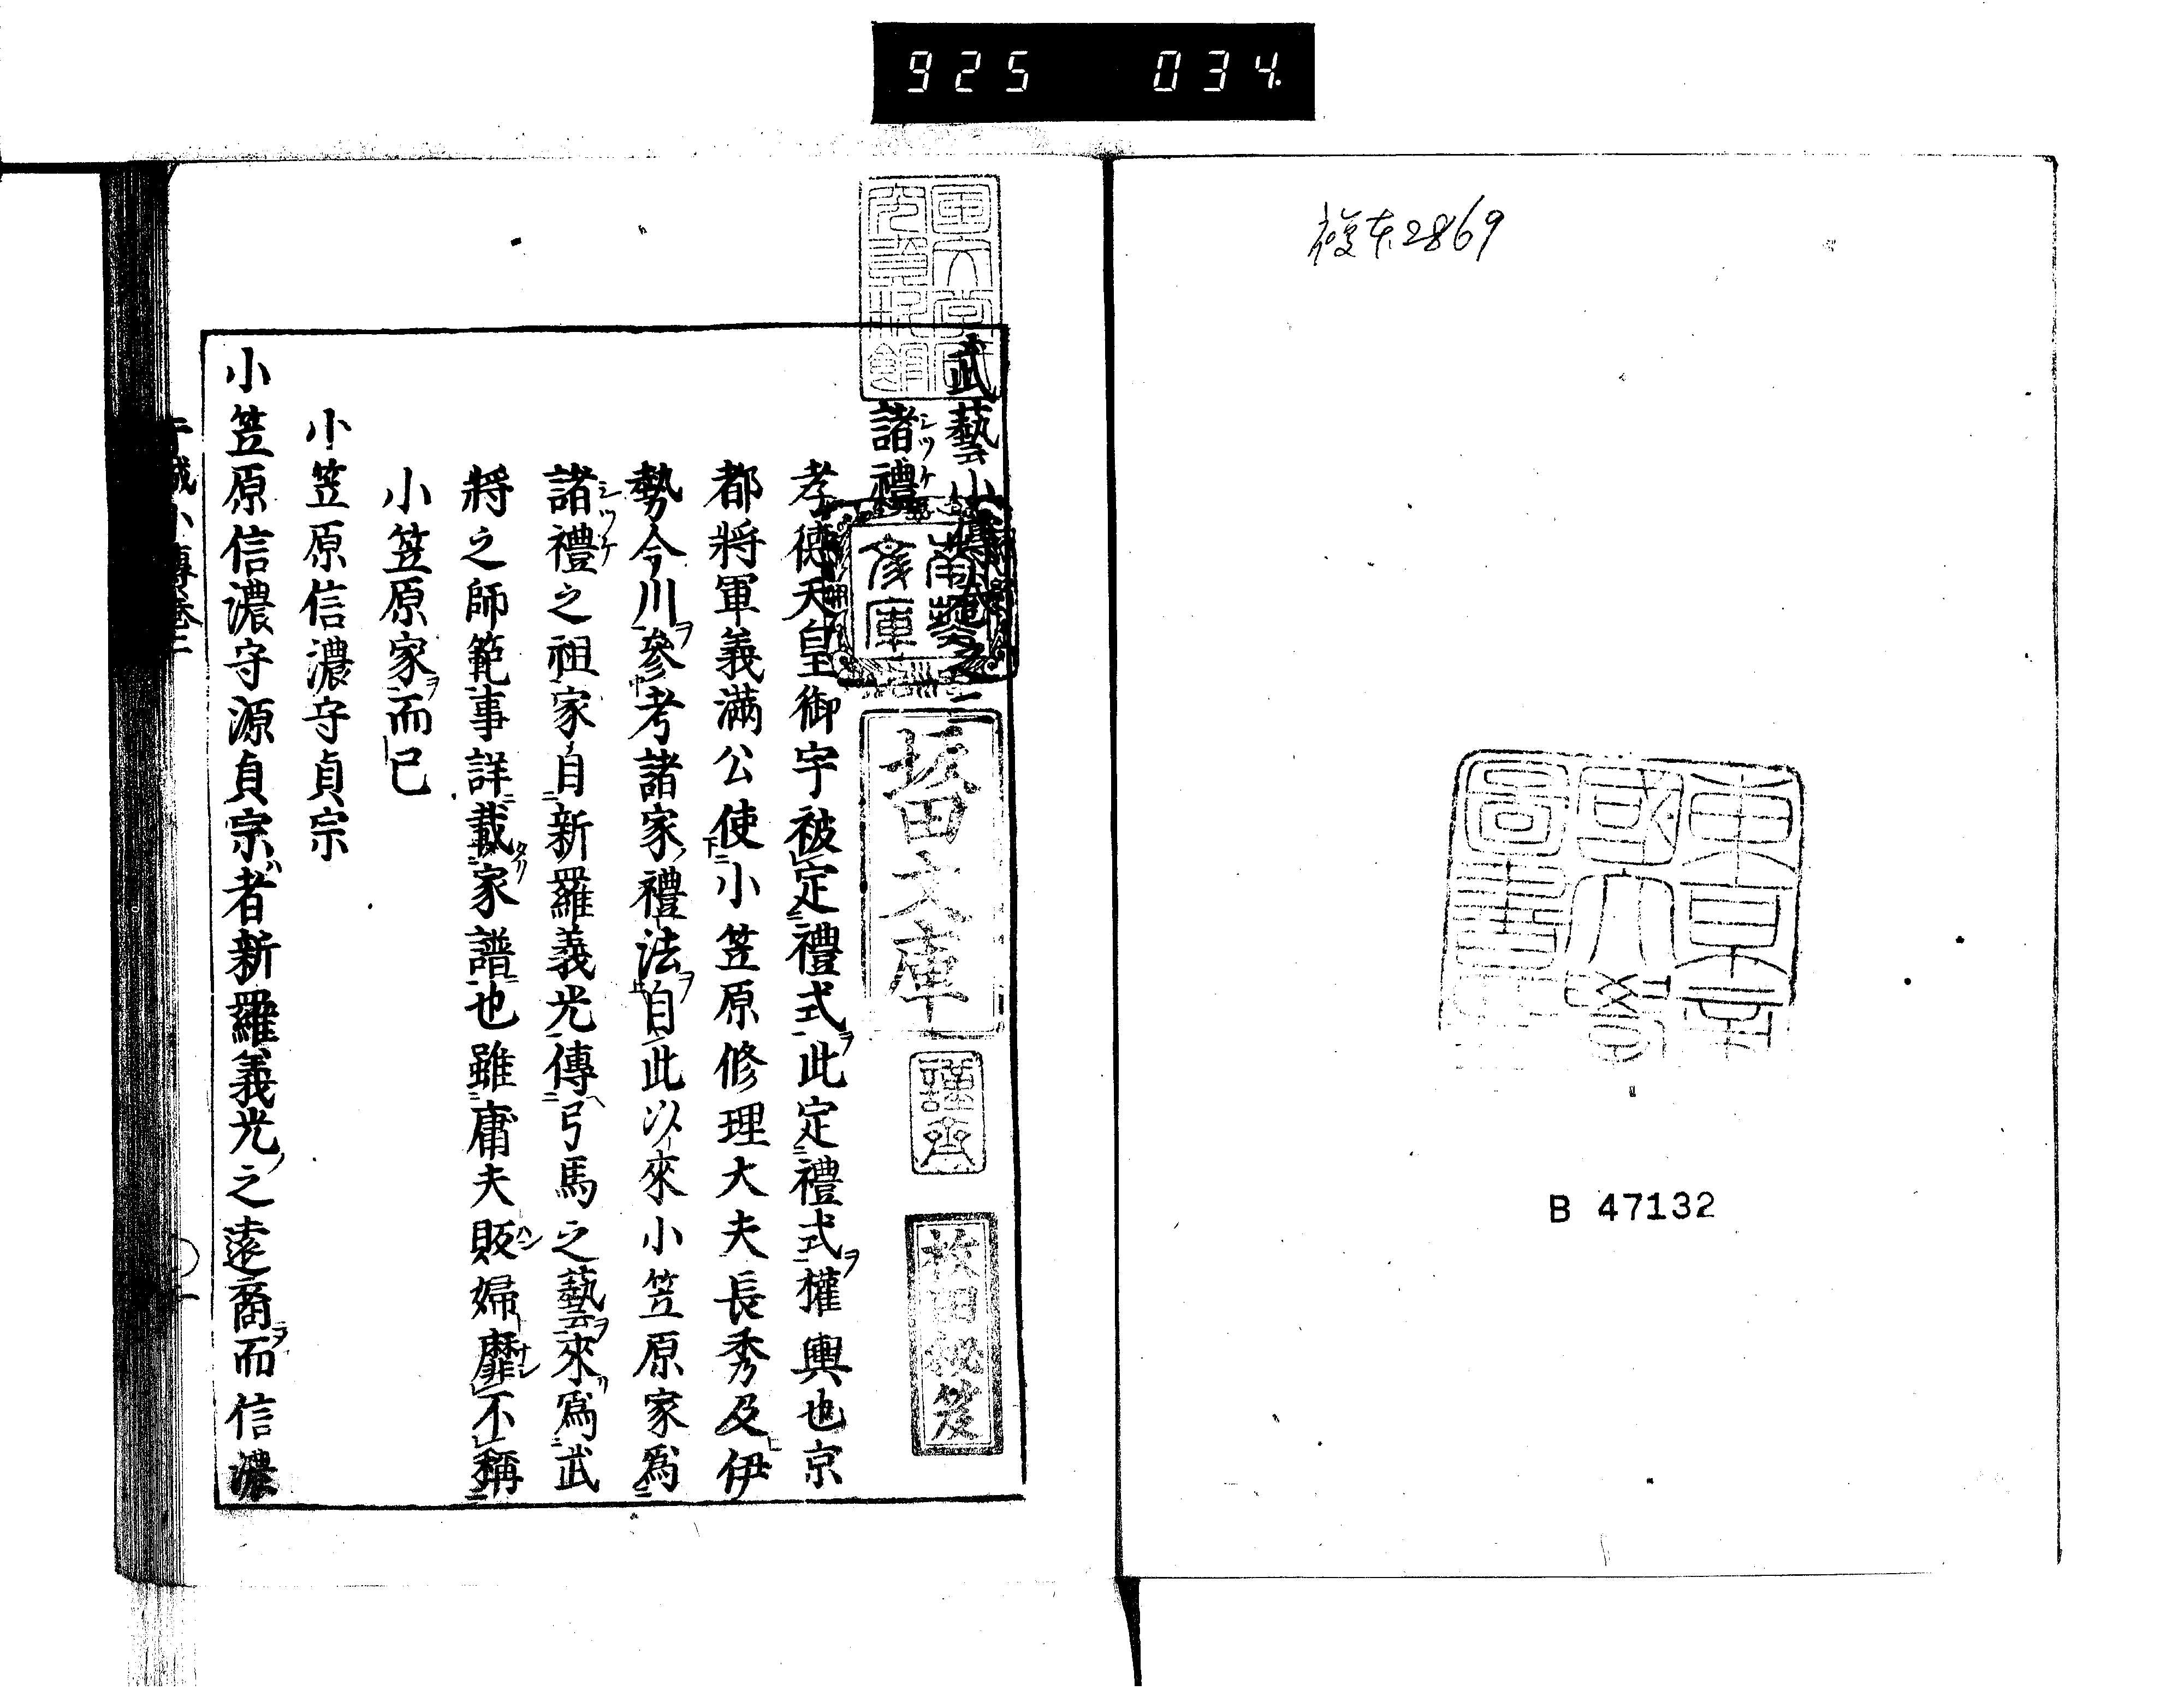 925 034
複本2869
東京
帝國大學
圖書印
B 47132
武藝小傳卷之二
諸禮
シツケ
南葵
文庫
謹齋
孝徳天皇御宇被定禮式ヲ此定禮式ヲ權輿也京
都將軍義滿公使小笠原修理大夫長秀及伊
勢今川參考諸家禮法ヲ自此以來小笠原家爲
諸禮之祖家自新羅義光傳弓馬之藝ヲ來爲武
將之師範事詳載家譜也雖庸夫販婦靡不稱
小笠原家ヲ而已
小笠原信濃守貞宗
小笠原信濃守源貞宗者新羅義光之遠裔而信濃
干城小傳卷二